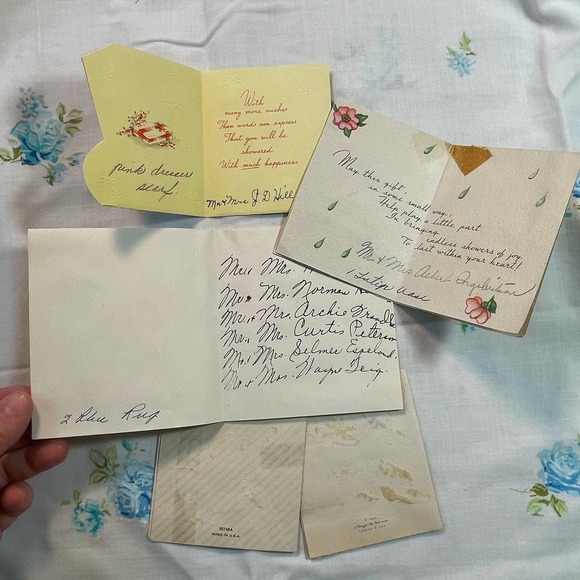 With
many more wishes
Than words can express
That you will be
showered
With much happiness
pink dresser
scarf
Mr + Mrs J D Hill
May this gift,
in some small way,
Help play a little part
In bringing
endless showers of joy
To last within your heart!
Mr + Mrs
1 Tulip Vase
Mr + Mrs.
Mr + Mrs. Norman
Mr + Mrs Archie
Mr + Mrs. Curtis Peterson
Mr + Mrs. Selmer Espeland.
Mr + Mrs. Wayne Teig.
2 Blue Rug
MADE IN U.S.A.